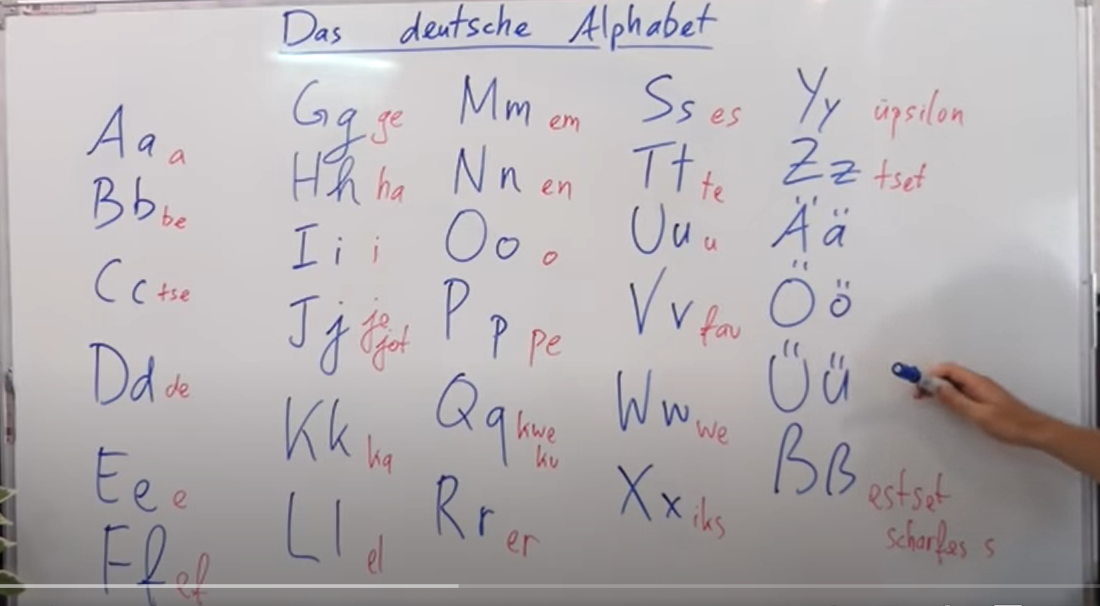 Das deutsche Alphabet
Aa a
Bb be
Cc tse
Dd de
Ee e
Ff ef
Gg ge
Hh ha
Ii i
Jj je
jot
Kk ka
Ll el
Mm em
Nn en
Oo o
Pp pe
Qq kwe
ku
Rr er
Ss es
Tt te
Uu u
Vv fau
Ww we
Xx iks
Yy üpsilon
Zz tset
Ää
Öö
Üü
ẞß estset
scharfes s